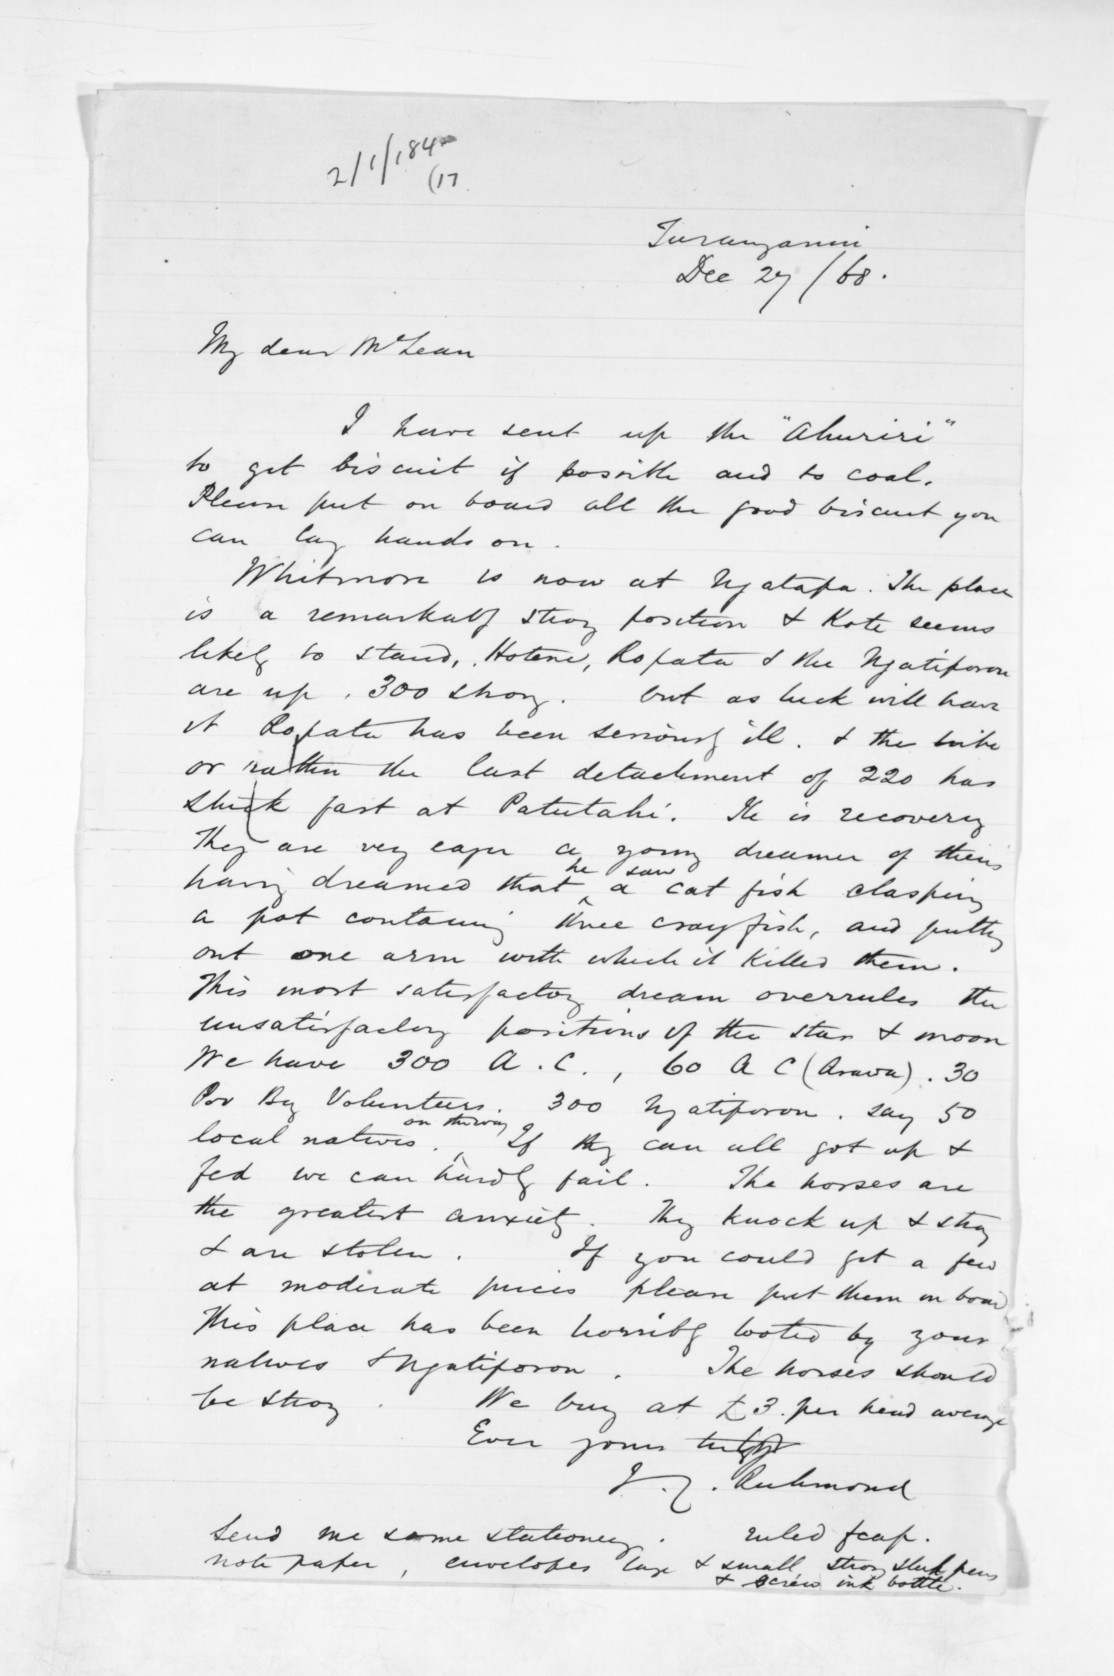 2/1/184
(17
Turanganui
Dec 27/68.
My dear McLean
I have sent up the "Ahuriri"
to get biscuit if possible and to coal.
Please put on board all the good biscuit you
can lay hands on.
Whitmore is now at Ngatapa. The place
is a remarkably strong position & Kote seems
likely to stand, Hotene, Ropata & the Ngatiporou
are up. 300 strong. but as luck will have
it Ropata has been seriously ill. & the tribe
or rather the last detachment of 220 has
stuck fast at Patutahi. He is recovering
They are very eager a young dreamer of theirs
having dreamed that he saw a cat fish clasping
a pot containing three crayfish, and putting
out one arm with which it killed them.
This most satisfactory dream overrules the
unsatisfactory positions of the star & moon
We have 300 A.C., 60 A C (Arawa). 30
Pov Bay Volunteers. 300 Ngatiporou. say 50
local natives on the way. If they can all got up &
fed we can hardly fail. The horses are
the greatest anxiety. They knock up & stray
& are stolen. If you could get a few
at moderate prices please put them on board
This place has been horribly looted by your
natives & Ngatiporou. The horses should
be strong. We buy at £3. per head average
Ever yours truly
J.C. Richmond
Send me some stationery. ruled fcap.
note paper, envelopes large & small strong steel pens
& screw ink bottle.